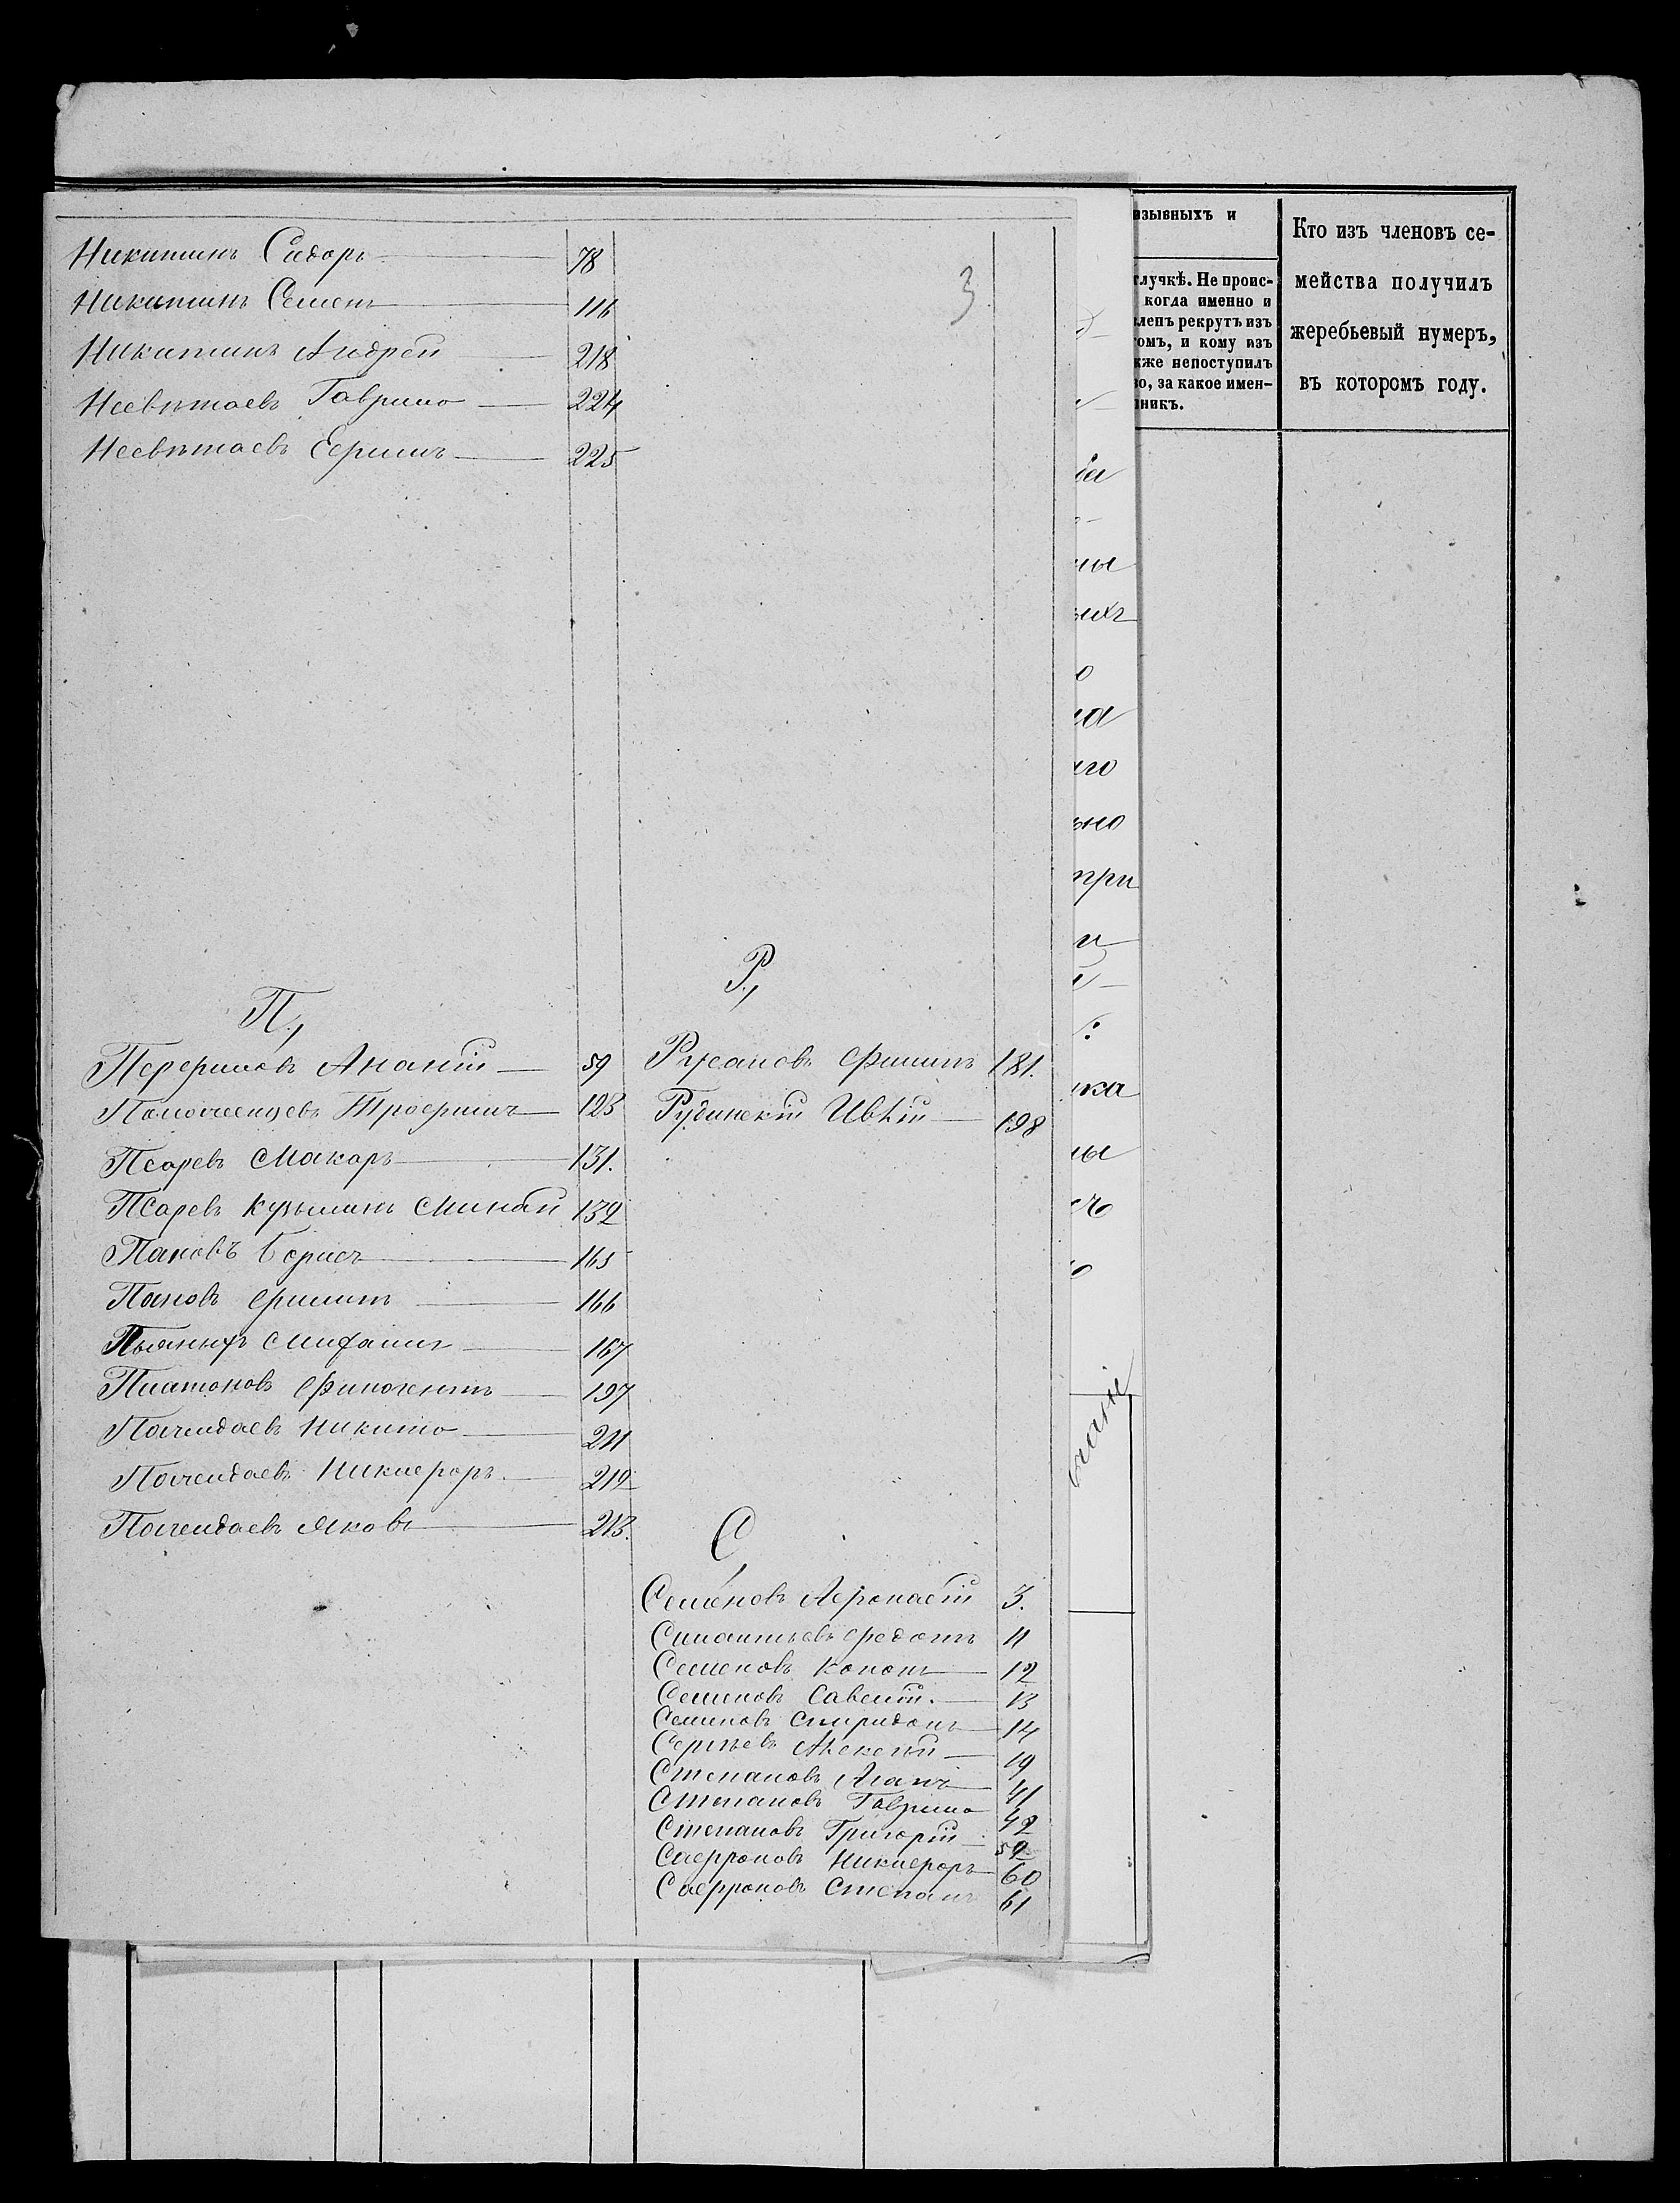 3
Никитинъ Сидоръ 78
Никитинъ Семенъ 116
Никитинъ Андрей 218
Несвѣтаевъ Гаврило 224
Несвѣтаевъ Ефимъ 225
П.,
Перфиловъ Ананій 59
Трофимъ 123
Псаревъ Макаръ 131.
Псаревъ Кузьминъ Минай 132
Пановъ Борисъ 165
Пановъ Филипъ 166
167
Платоновъ Финогенъ 197
Почендаевъ Никита 211
Почендаевъ Никифоръ 212
Почендаевъ Яковъ 213.
Р.,
Русановъ Филипъ 181.
Рудинскій 198
С,
Семеновъ Афонасій 3.
Федотъ 11
Семеновъ Кононъ 12
Семеновъ Савелій. 13
Семеновъ Спиридонъ 14
Сергѣевъ Алексѣй 19
Степановъ 41
Степановъ Гаврило 42
Степановъ Григорій 52
Сафроновъ Никифоръ 60
Сафроновъ Степанъ 61
изывныхъ и
лучкѣ. Не проис-
когда именно и
ленъ рекрутъ изъ
омъ, и кому изъ
кже непоступилъ
во, за какое имен-
никъ.
Кто изъ членовъ се-
мейства получилъ
жеребьевый нумеръ,
въ которомъ году.
ны
ыхъ
на
аго
ьно
при
ика
ны